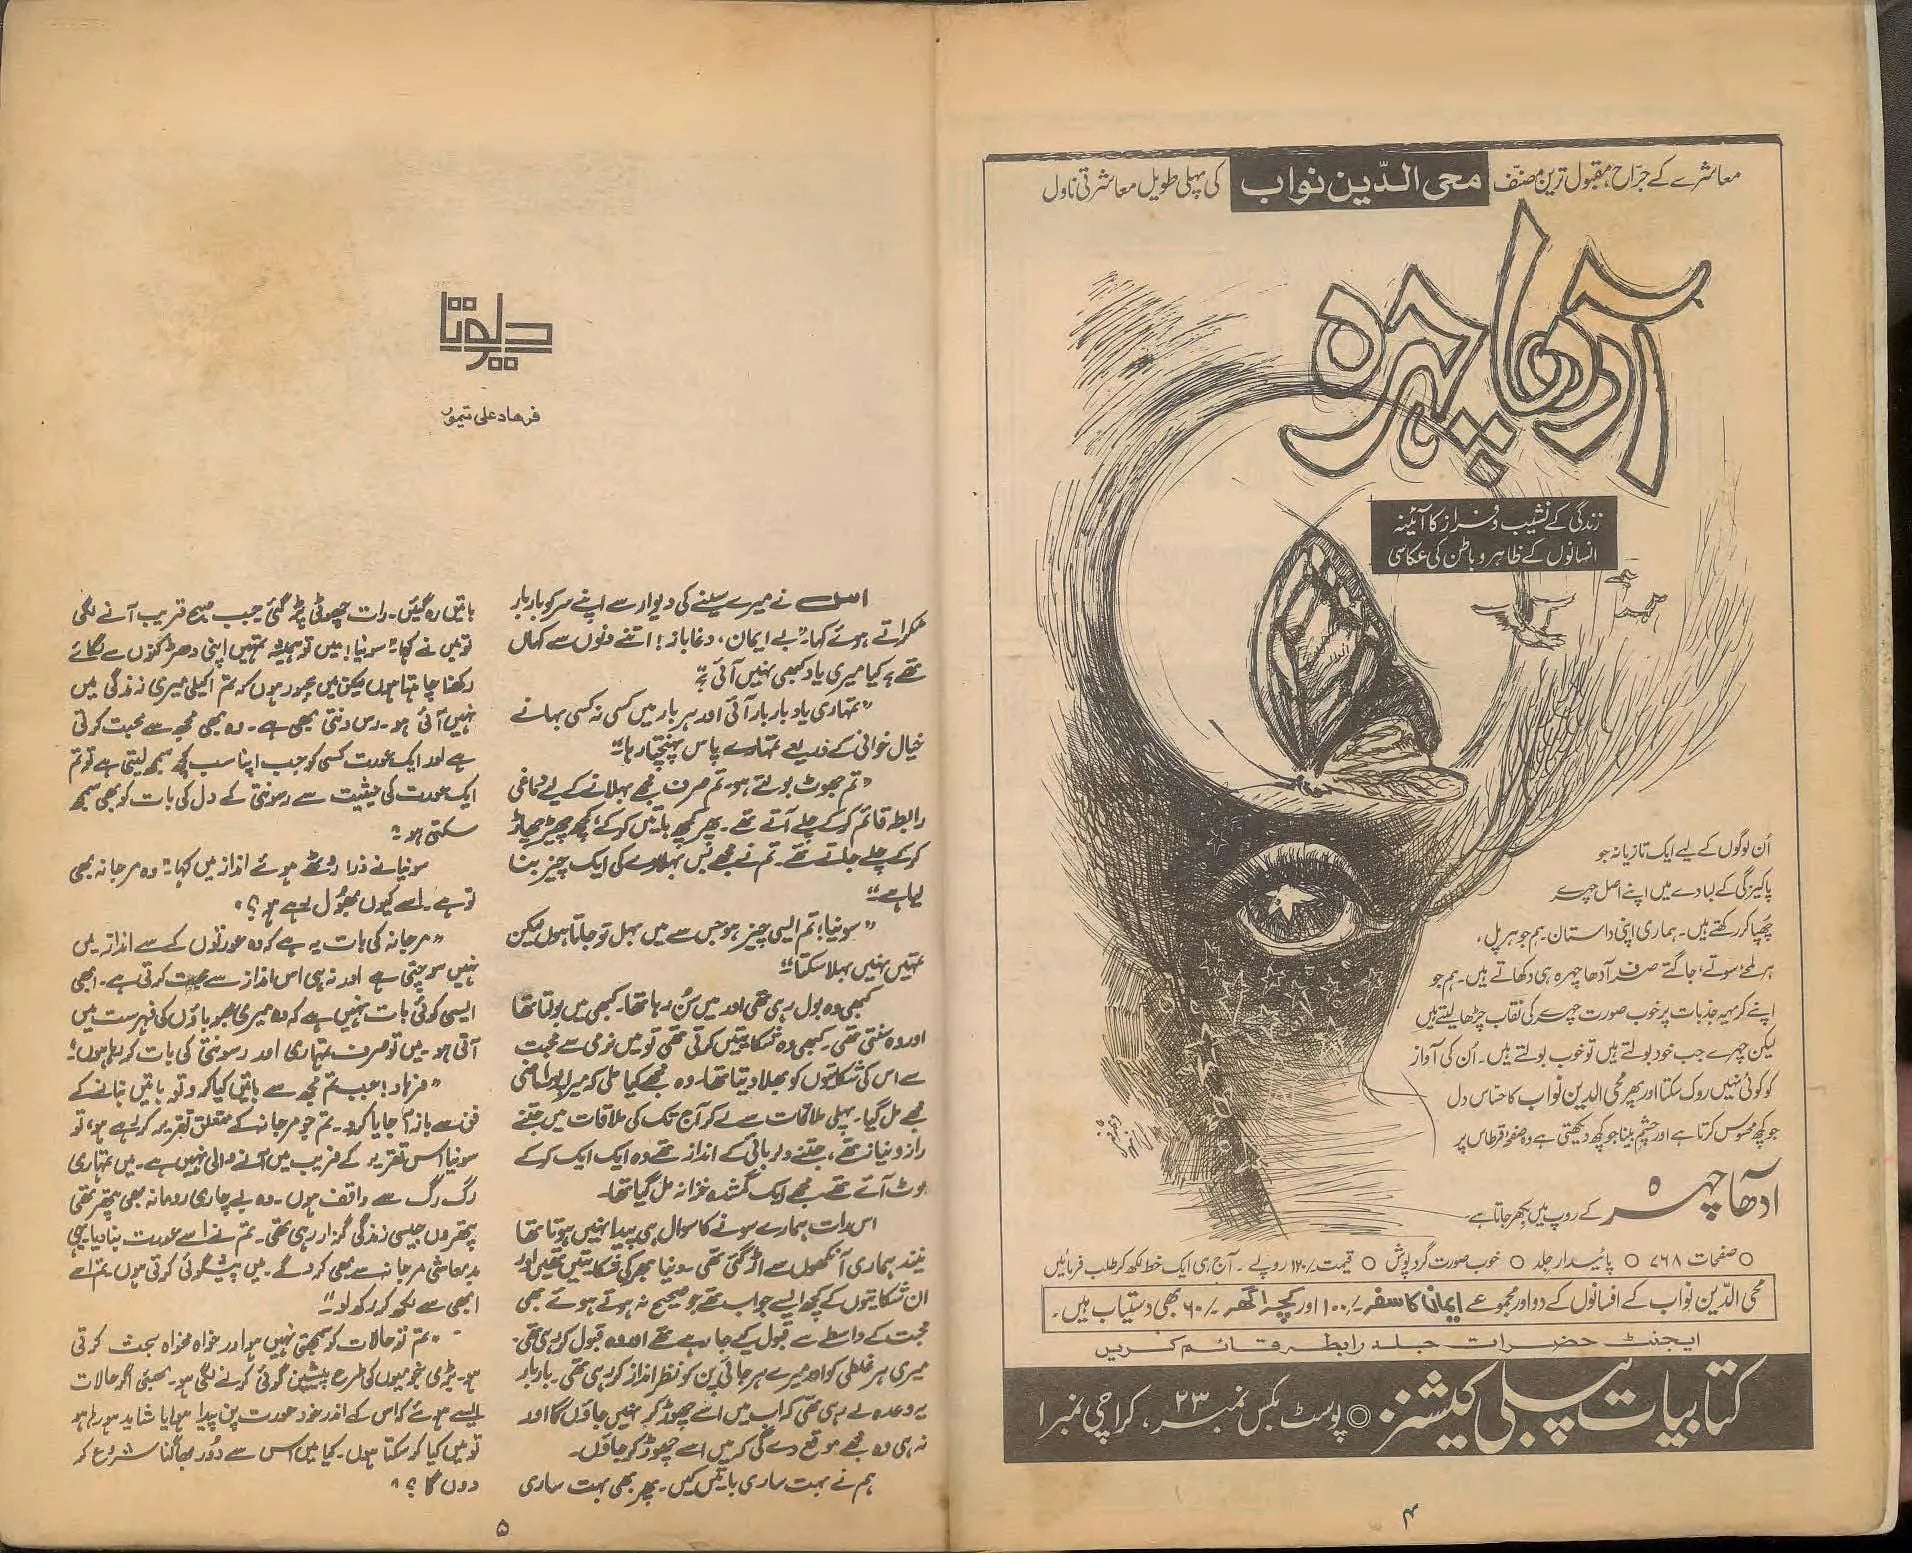 معاشرے کے جرّاح، مقبول ترین مصنّف محی الدّین نواب کی پہلی طویل معاشرتی ناول
آدھا چہرہ
زندگی کے نشیب و فراز کا آئینہ
انسانوں کے ظاہر و باطن کی عکاسی
اُن لوگوں کے لیے ایک تازیانہ جو
پاکیزگی کے لبادے میں اپنے اصل چہرے
چھپا کر رکھتے ہیں۔ ہماری اپنی داستان۔ ہم جو ہر پل،
ہر لمحے، سوتے، جاگتے صرف آدھا چہرہ ہی دکھاتے ہیں۔ ہم جو
اپنے کریہہ جذبات پر خوب صورت چہرے کی نقاب چڑھا لیتے ہیں
لیکن چہرے جب خود بولتے ہیں تو خوب بولتے ہیں۔ اُن کی آواز
کو کوئی نہیں روک سکتا اور پھر محی الدین نواب کا حسّاس دل
جو کچھ محسوس کرتا ہے اور چشمِ بینا جو کچھ دیکھتی ہے وہ صفحۂ قرطاس پر
آدھا چہرہ کے روپ میں بکھر جاتا ہے۔
○ صفحات ۷۶۸ ○ پائیدار جلد ○ خوب صورت گردپوش ○ قیمت ۱۲۰/ روپے ۔ آج ہی ایک خط لکھ کر طلب فرمائیں
محی الدّین نواب کے افسانوں کے دو اور مجموعے ایمان کا سفر ۱۰۰/ اور کچرا گھر ۶۰/ بھی دستیاب ہیں۔
ایجنٹ حضرات جلد رابطہ قائم کریں
کتابیات پبلی کیشنز ◎ پوسٹ بکس نمبر ۲۳، کراچی نمبر ۱
۴
دیوتا
فرہاد علی تیمور
اس نے میرے سینے کی دیوار سے اپنے سر کو بار بار
ٹکراتے ہوئے کہا۔ "بے ایمان، دغاباز! اتنے دنوں سے کہاں
تھے؟ کیا میری یاد کبھی نہیں آئی؟"
"تمہاری یاد بار بار آئی اور ہر بار میں کسی نہ کسی بہانے
خیال خوانی کے ذریعے تمہارے پاس پہنچتا رہا۔"
"تم جھوٹ بولتے ہو۔ تم صرف مجھے بہلانے کے لیے دماغی
رابطہ قائم کر کے چلے آتے تھے۔ پھر کچھ باتیں کر کے، کچھ چھیڑ چھاڑ
کر کے چلے جاتے تھے۔ تم نے مجھے بس بہلاوے کی ایک چیز بنا
لیا ہے۔"
"سونیا! تم ایسی چیز ہو جس سے میں بہل تو جاتا ہوں لیکن
تمہیں نہیں بہلا سکتا۔"
کبھی وہ بول رہی تھی اور میں سُن رہا تھا۔ کبھی میں بولتا تھا
اور وہ سنتی تھی۔ کبھی وہ شکایتیں کرتی تھی تو میں نرمی سے محبت
سے اس کی شکایتوں کو بھلا دیتا تھا۔ وہ مجھے کیا ملی کہ میرا پورا ماضی
مجھے مل گیا۔ پہلی ملاقات سے لے کر آج تک کی ملاقات میں جتنے
راز و نیاز تھے، جتنے دلربائی کے انداز تھے وہ ایک ایک کر کے
لوٹ آئے تھے۔ مجھے ایک گمشدہ خزانہ مل گیا تھا۔
اس رات ہمارے سونے کا سوال ہی پیدا نہیں ہوتا تھا
نیند ہماری آنکھوں سے اُڑ گئی تھی۔ دنیا بھر کی شکایتیں تھیں اور
ان شکایتوں کے کچھ ایسے جواب تھے جو صحیح نہ ہوتے ہوئے بھی
محبت کے واسطے سے قبول کیے جا رہے تھے اور وہ قبول کر رہی تھی۔
میری ہر غلطی کو اور میرے ہرجائی پن کو نظر انداز کر رہی تھی۔ بار بار
یہ وعدہ لے رہی تھی کہ اب میں اسے چھوڑ کر نہیں جاؤں گا اور
نہ ہی وہ مجھے موقع دے گی کہ میں اسے چھوڑ کر جاؤں۔
ہم نے بہت ساری باتیں کیں۔ پھر بھی بہت ساری
باتیں رہ گئیں۔ رات چھوٹی پڑ گئی جب صبح قریب آنے لگی
تو میں نے کہا "سونیا! میں تو ہمیشہ تمہیں اپنی دھڑکنوں سے لگائے
رکھنا چاہتا ہوں لیکن میں مجبور ہوں کہ تم اکیلی میری زندگی میں
نہیں آئی ہو۔ رسونتی بھی ہے۔ وہ بھی مجھ سے محبت کرتی
ہے اور ایک عورت کسی کو جب اپنا سب کچھ سمجھ لیتی ہے تو تم
ایک عورت کی حیثیت سے رسونتی کے دل کی بات کو بھی سمجھ
سکتی ہو؟"
سونیا نے ذرا روٹھے ہوئے انداز میں کہا "وہ مرجانہ بھی
تو ہے۔ اسے کیوں بھول رہے ہو؟"
"مرجانہ کی بات یہ ہے کہ وہ عورتوں کے سے انداز میں
نہیں سوچتی ہے اور نہ ہی اس انداز سے محبت کرتی ہے۔ ابھی
ایسی کوئی بات نہیں ہے کہ وہ میری محبوباؤں کی فہرست میں
آتی ہو۔ میں تو صرف تمہاری اور رسونتی کی بات کر رہا ہوں۔"
"فرہاد! جب تم مجھ سے باتیں کیا کرو تو باتیں بنانے کے
فن سے باز آ جایا کرو۔ تم جو مرجانہ کے متعلق تقریر کر رہے ہو، تو
سونیا اس تقریر کے فریب میں آنے والی نہیں ہے۔ میں تمہاری
رگ رگ سے واقف ہوں۔ وہ بے چاری رومانہ بھی پتھر تھی
پتھروں جیسی زندگی گزار رہی تھی۔ تم نے اسے عورت بنا دیا۔ یہی
بدمعاشی مرجانہ سے بھی کرو گے۔ میں پیشگوئی کرتی ہوں، تم اسے
ابھی سے لکھ کر رکھ لو۔"
"تم تو حالات کو سمجھتی نہیں ہو اور خواہ مخواہ بحث کرتی
ہو۔ بڑی نجومیوں کی طرح پیشین گوئی کرنے لگی ہو۔ بھئی اگر حالات
ایسے ہوئے کہ اس کے اندر خود عورت پن پیدا ہو یا شاید ہو رہا ہو
تو میں کیا کر سکتا ہوں۔ کیا میں اس سے دُور بھاگنا شروع کر
دوں گا؟"
۵